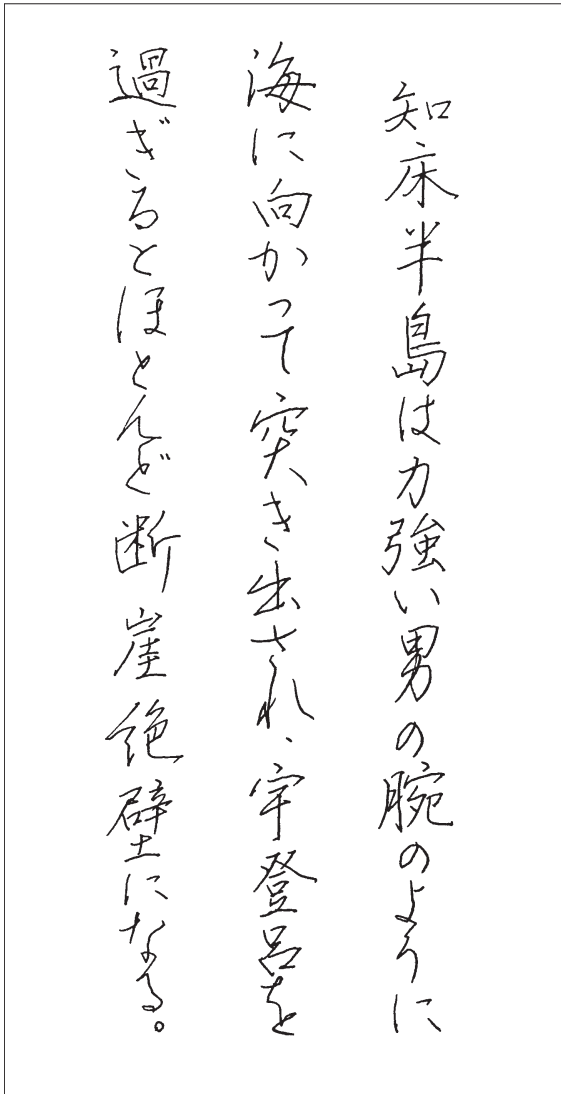 知床半島は力強い男の腕のように
海に向かって突き出され、宇登呂を
過ぎるとほとんど断崖絶壁になる。